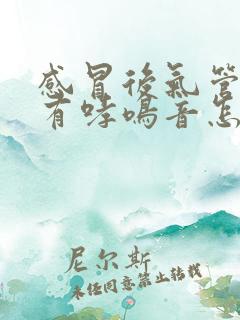 感冒後氣管
有哮鳴音怎
尼尔斯
未经同意禁止转载